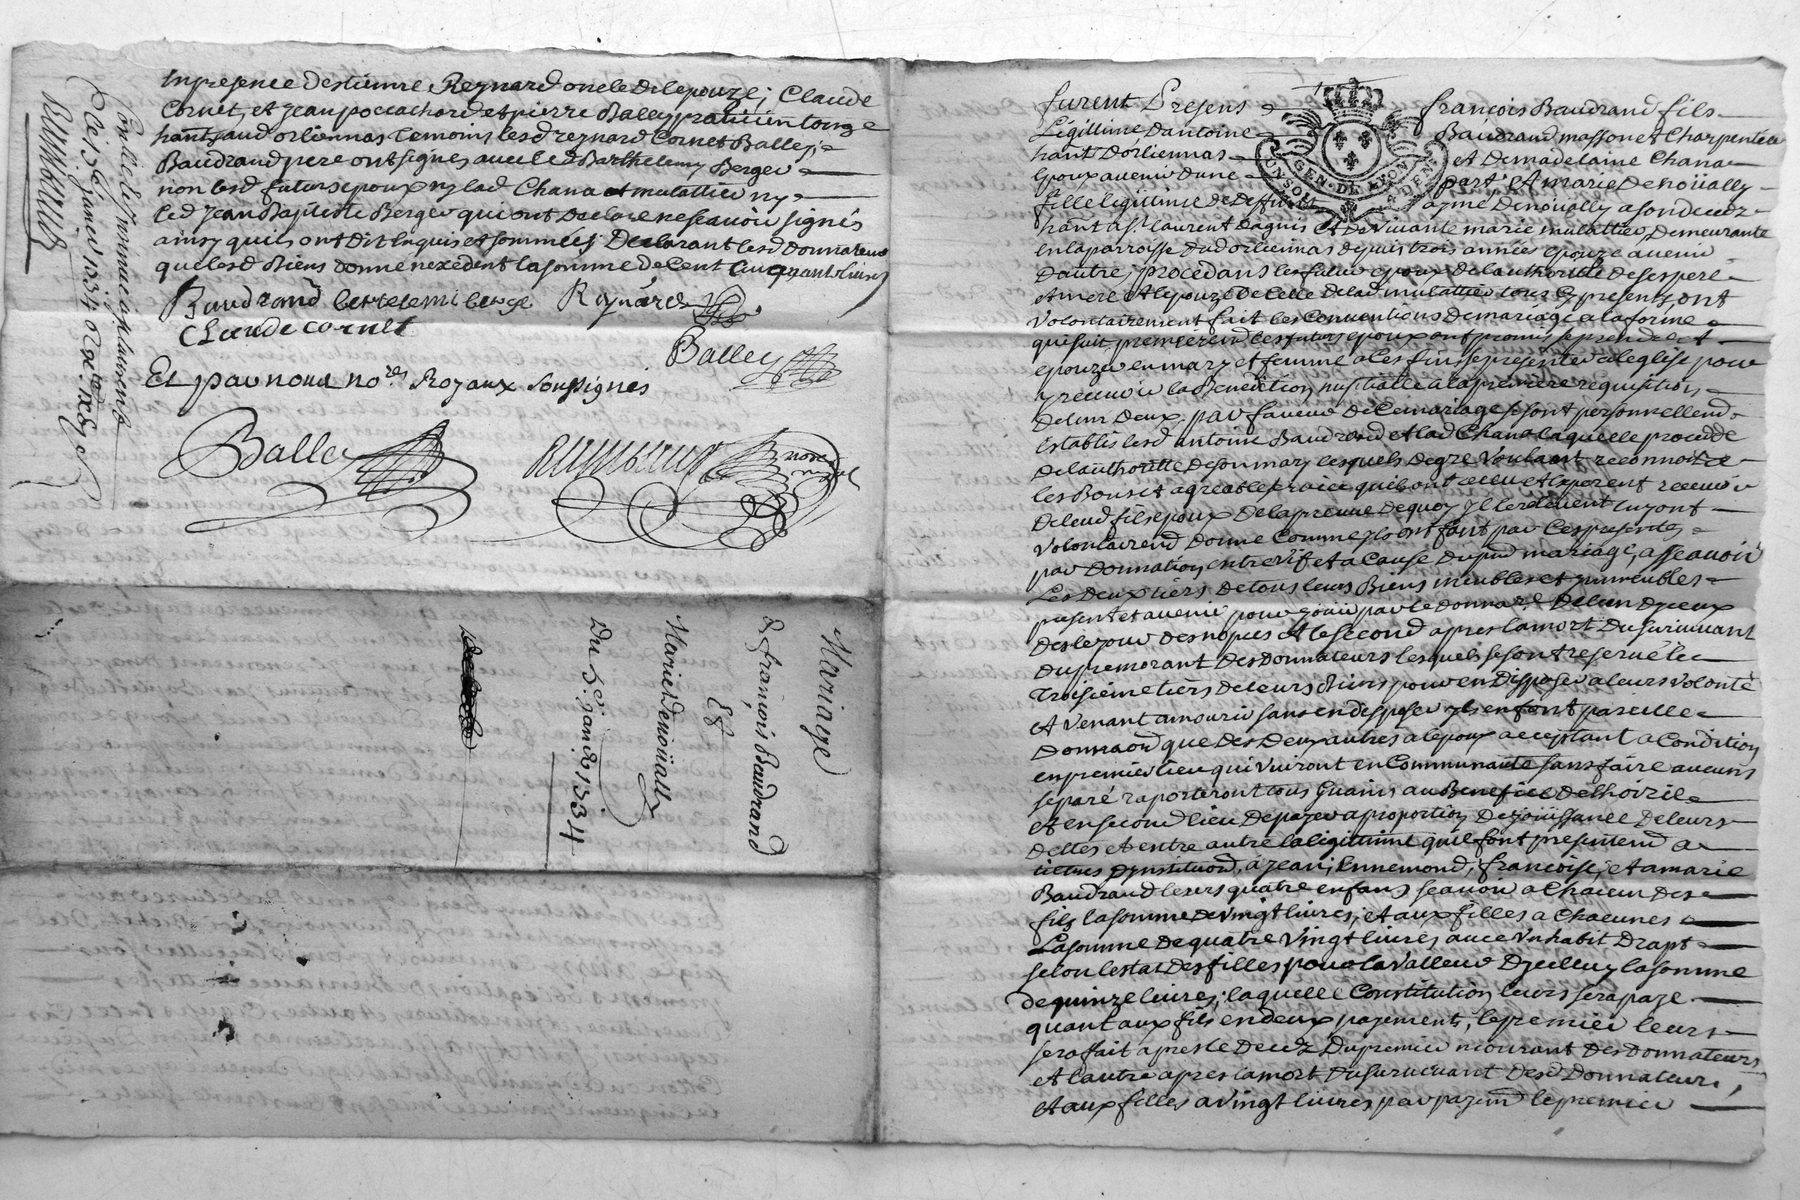 furent Presens françois Baudrand fils
Légittime dantoine Baudrand masson et Charpentier
hant dorliennas et de madelaine Chana
Epoux avenir dune part, Et marie denoüally
fille legittime de deffunt aymé denoüally a son deced
hant a st laurent dagnis Et de vivante marie mulattier demeurante
en la parroisse dud orliennas depuis trois années epouze avenir
dautre, procedans les futurs epoux de lauthorité de ses pere
et mere et lepouze de celle de lad mulattier tous cy presents ont
volontairement fait les Conventions de mariage a la forme
que suit, premierem les futurs epoux ont promis se prendre et
epouzer en mary et femme a ces fins se présenter a leglise pour
y recevoir la Benediction nuptialle a la premiere requisition
de lun deux, par faveur de Ce mariage se sont personnellem
establis lesd antoine Baudrand et lad Chana laquelle procede
de lauthoritté de son mary lesquels de gré voulant reconnoitre
les Bons et agreables services quils ont receu et esperent recevoir
deleud fils epoux de la preuve de quoy Il le relevent luy ont
volontairem donné Comme ils ont fait par Ces presentes
par donnation entre vif et a Cause dupnt mariage, asseavoir
Les deux tiers de tous leurs Biens meubles et immeubles
present et avenir pour joüir par le donnare de lun diceux
des le jour des nopces et le second apres la mort du survivant
du premorant des donnateurs lesquels se sont reservé le
troisieme tiers de leurs Biens pour en disposer a leurs volonté
et venant a mourir sans en disposer ils en font pareille
donnaon que des deux autres a lepoux acceptant a Condition
en premier lieu qui vivront en Communauté sans faire aucuns
separé raporteront tous guains au Benefice de lhoirie
et en second lieu de payer a proportion de joüissance de leurs
dettes et entre autre la legittime quils font presentem a
tittres dinstitution, a jean, Ennemond, françoise, et a marie
Baudrand leurs quatre enfans scavoir a Chacun des
fils la somme de vingt livres, et aux filles a Chacunes
La somme de quatre vingt livres avec un habit drapt
selon lestat des filles pour la valleur dicelluy la somme
de quinze livres, laquelle Constitution leurs sera paye
quant aux fils en deux payements, le premier leurs
sera fait apres le deced du premier mourant des donnateurs
et lautre apres la mort du survivant desd donnateurs,
et aux filles a vingt livres par payem le premier
En presence destienne Reynard oncle de lepouze, Claude
Cornet, et jean pocachard et pierre Balley praticien tous
hants aud orliennas temoins lesd reynard Cornet Balley
Baudrand pere ont signes avec led Barthelemy Berger
non lesd futurs epoux ny lad Chana et mulattier ny
led jean Baptiste Berger qui ont declaré ne scavoir signés
ainsy quils ont dit Enquis et sommées Declarant lesd donnateurs
que lesd Biens donné nexcedent la somme de Cent Cinquante livres
Baudrand bertelemi berge Reynard
Claude cornet
Balley
Et par nous nores Royaux soussignés
Balley
Controllé
Mariage
de françois Baudrand
Et
Marie denoüally
Du 5e janer 1734